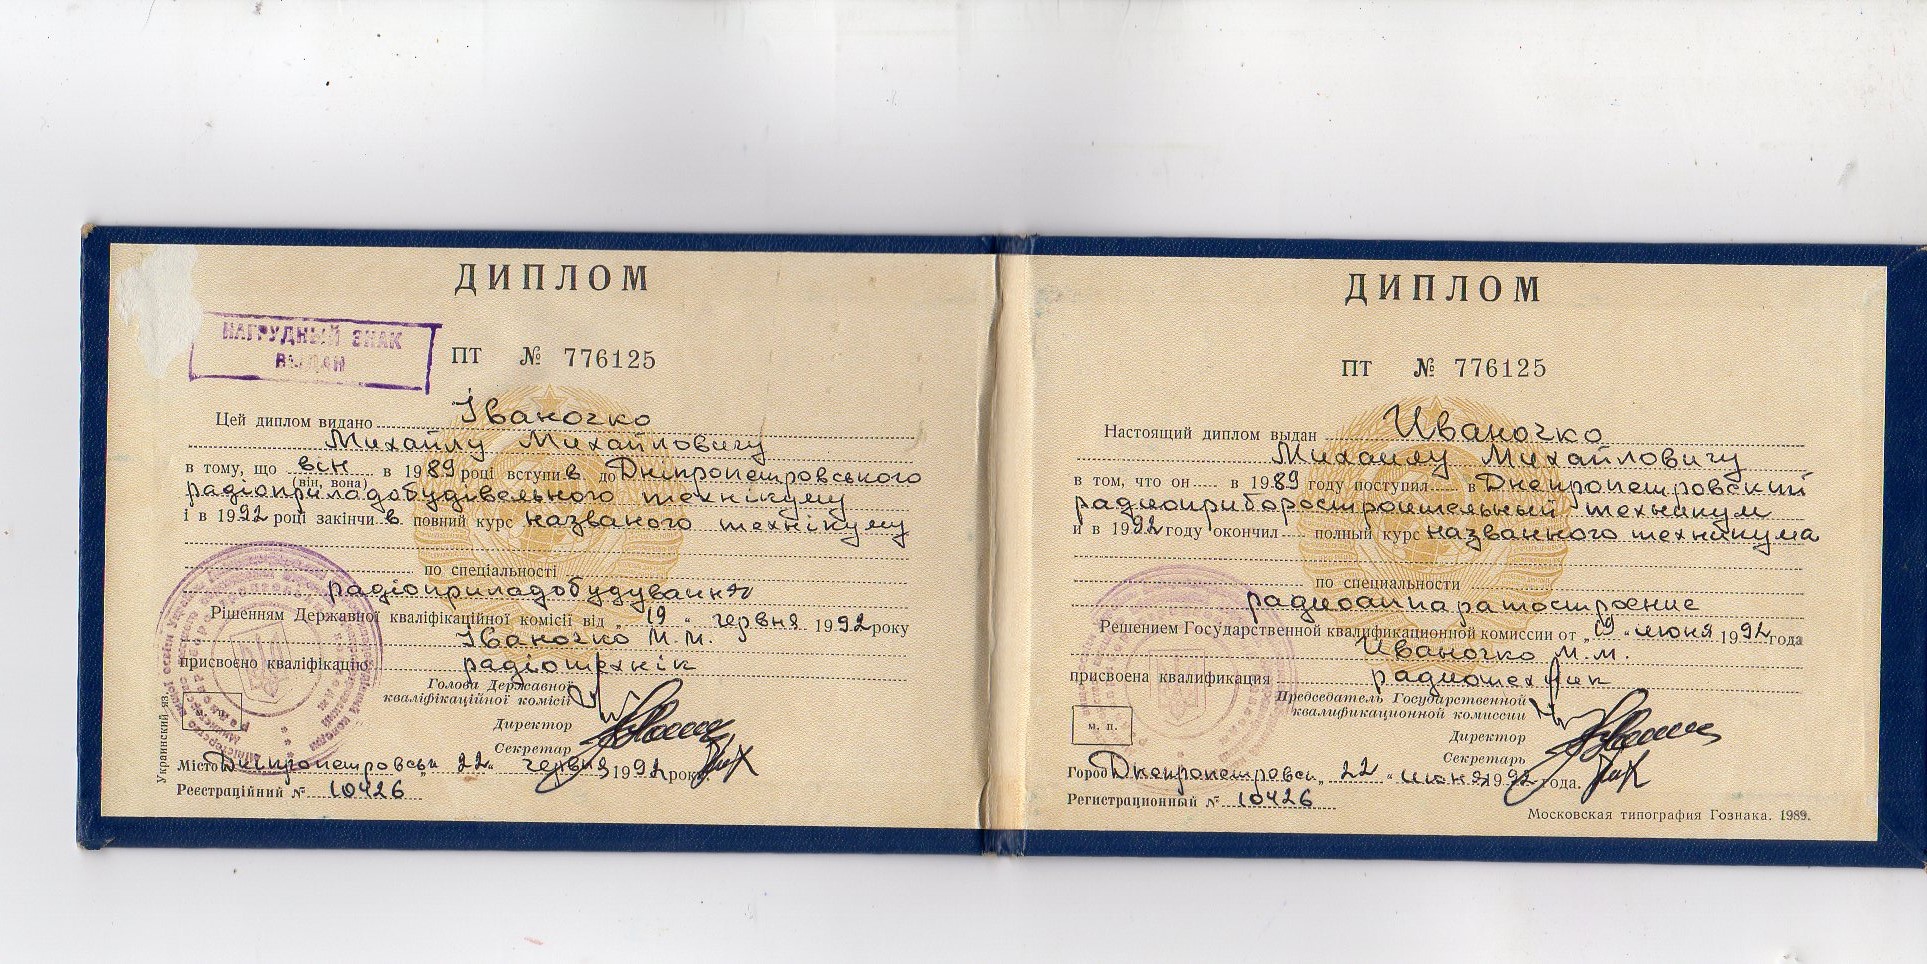 ДИПЛОМ
НАГРУДНЫЙ ЗНАК
ВЫДАН
ПТ № 776125
Цей диплом видано Іваночко
Михайлу Михайловичу
в тому, що він в 1989 році вступив до Дніпропетровського
(він, вона)
радіоприладобудівельного технікуму
і в 1992 році закінчив повний курс названого технікуму
по спеціальності
радіоприладобудування
Рішенням Державної кваліфікаційної комісії від „19" червня 1992 року
Іваночко М.М.
присвоєно кваліфікацію радіотехнік
Голова Державної
кваліфікаційної комісії
Директор
Секретар
Місто Дніпропетровськ „22" червня 1992 року
Реєстраційний № 10426
Украинский яз.
ДИПЛОМ
ПТ № 776125
Настоящий диплом выдан Иваночко
Михаилу Михайловичу
в том, что он в 1989 году поступил в Днепропетровский
радиоприборостроительный техникум
и в 1992 году окончил полный курс названного техникума
по специальности
радиоаппаратостроение
Решением Государственной квалификационной комиссии от „19" июня 1992 года
Иваночко М.М.
присвоена квалификация радиотехник
Председатель Государственной
квалификационной комиссии
Директор
Секретарь
м. п.
Город Днепропетровск „22" июня 1992 года.
Регистрационный № 10426
Московская типография Гознака. 1989.